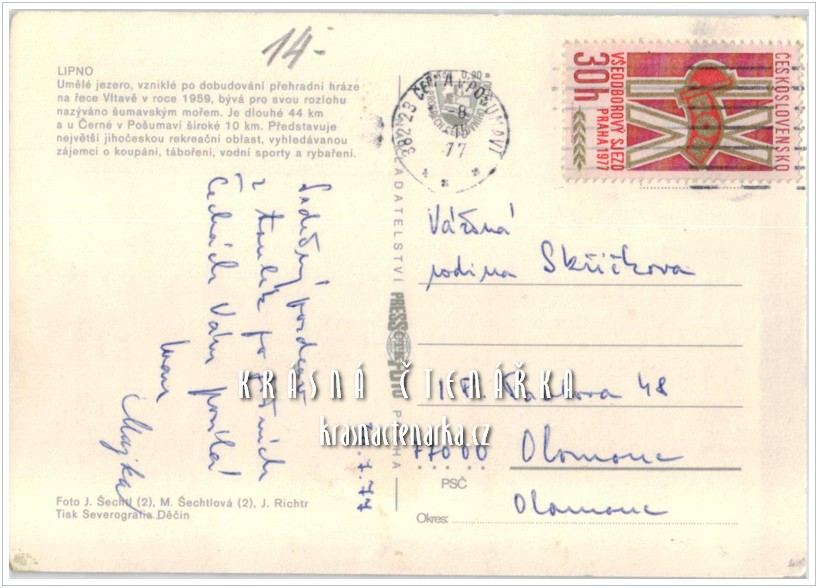 14-
LIPNO
Umělé jezero, vzniklé po dobudování přehradní hráze
na řece Vltavě v roce 1959, bývá pro svou rozlohu
nazýváno šumavským mořem. Je dlouhé 44 km
a u Černé v Pošumaví široké 10 km. Představuje
největší jihočeskou rekreační oblast, vyhledávanou
zájemci o koupání, táboření, vodní sporty a rybaření.
382 23
77
ČESKOSLOVENSKO
VŠEODBOROVÝ SJEZD
PRAHA 1977
30h
Srdečný pozdrav
z toulek po jižních
Čechách Vám posílá
Ivan
Majka
7.77
NAKLADATELSTVÍ PRESSFOTO PRAHA
Vážená
rodina Skřičkova
48
77000 Olomouc
PSČ
Olomouc
Okres:
KRÁSNÁ ČTENÁŘKA
krasnactenarka.cz
Foto J. Šechtl (2), M. Šechtlová (2), J. Richtr
Tisk Severografia Děčín